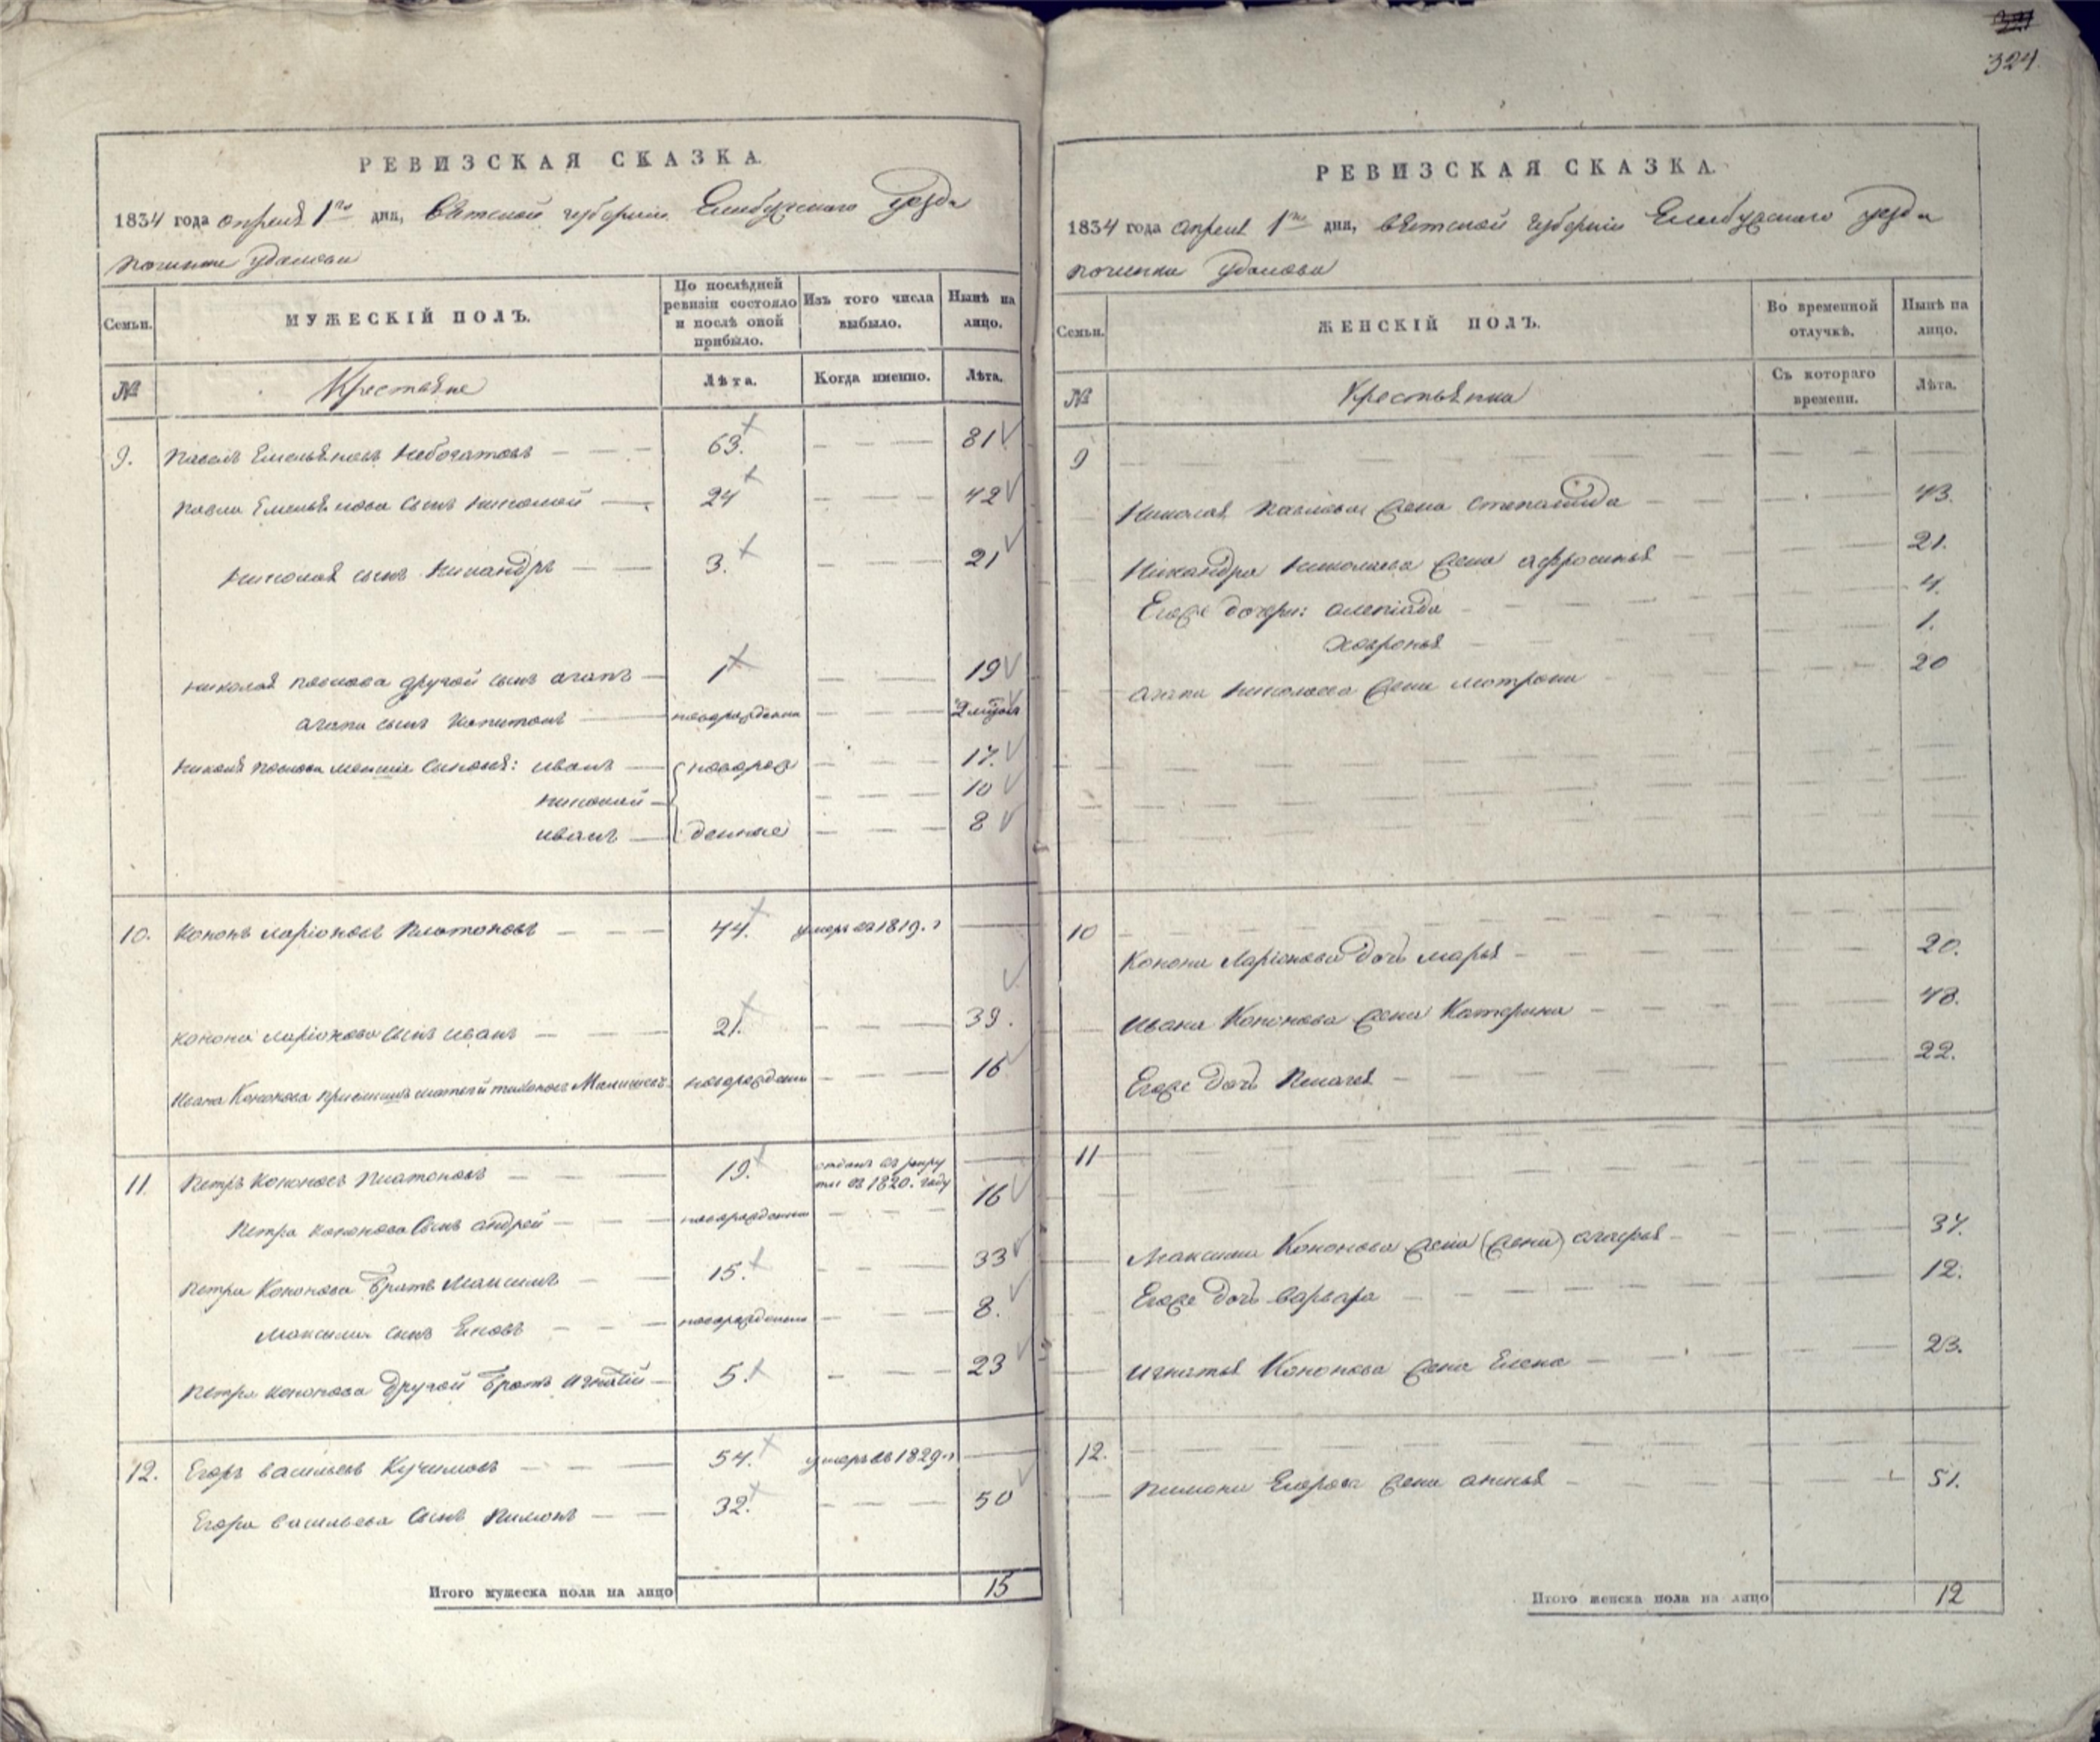 321
324
РЕВИЗСКАЯ СКАЗКА.
1834 года апреля 1го дня, Вятской губернии Елабужского уезда
починка Удалова
Семьи.
МУЖЕСКІЙ ПОЛЪ.
По послѣдней ревизіи состояло и послѣ оной прибыло.
Изъ того числа выбыло.
Нынѣ на лицо.
№
Крестьяне
Лѣта.
Когда именно.
Лѣта.
9. Павелъ Емельяновъ Небогатовъ 63. 81
Павла Емельянова сынъ Николай 24 42
Николая сынъ Никандръ 3. 21
Николая Павлова другой сынъ Агапъ 1 19
Агапа сынъ Капитонъ новорожденны 2 мцовъ
Николая Павлова меньшіе сыновья: Иванъ новорож 17.
Николай 10
Иванъ денные 8
10. Кононъ Ларіоновъ Платоновъ 44. умеръ въ 1819. г
Конона Ларіонова сынъ Иванъ 21. 39.
Ивана Кононова приемышъ Матвей Тихоновъ новорожденны 16
11. Петръ Кононовъ Платоновъ 19. отданъ въ рекру
ты въ 1820. году
Петра Кононова сынъ Андрей новорожденны 16
Петра Кононова братъ Максимъ 15. 33
Максима сынъ новорожденны 8.
Петра Кононова другой братъ Игнатій 5. 23
12. Егоръ Васильевъ Кучумовъ 54. умеръ въ 1829. г
Егора Васильева сынъ Пимонъ 32. 50
Итого мужеска пола на лицо 15
РЕВИЗСКАЯ СКАЗКА.
1834 года апреля 1го дня, Вятской губерніи Елабужского уезда
починка Удалова
Семьи.
ЖЕНСКІЙ ПОЛЪ.
Во временной отлучкѣ.
Нынѣ на лицо.
№
Крестьянки
Съ котораго времени.
Лѣта.
9
Николая Павлова жена Степанида 43.
Никандра Николаева жена Афросинья 21.
Егоже дочери: Олепіада 4.
Ховронья 1.
Агапа Николаева жена Матрона 20
10
Конона Ларіонова дочь Марья 20.
Ивана Кононова жена Катерина 43.
Егоже дочь Пелагея 22.
11
Максима Кононова жена (жена) Агафья 37.
Егоже дочь Варвара 12.
Игнатья Кононова жена Елена 23.
12.
Пимона Егорова жена Анна 51.
Итого женска пола на лицо 12